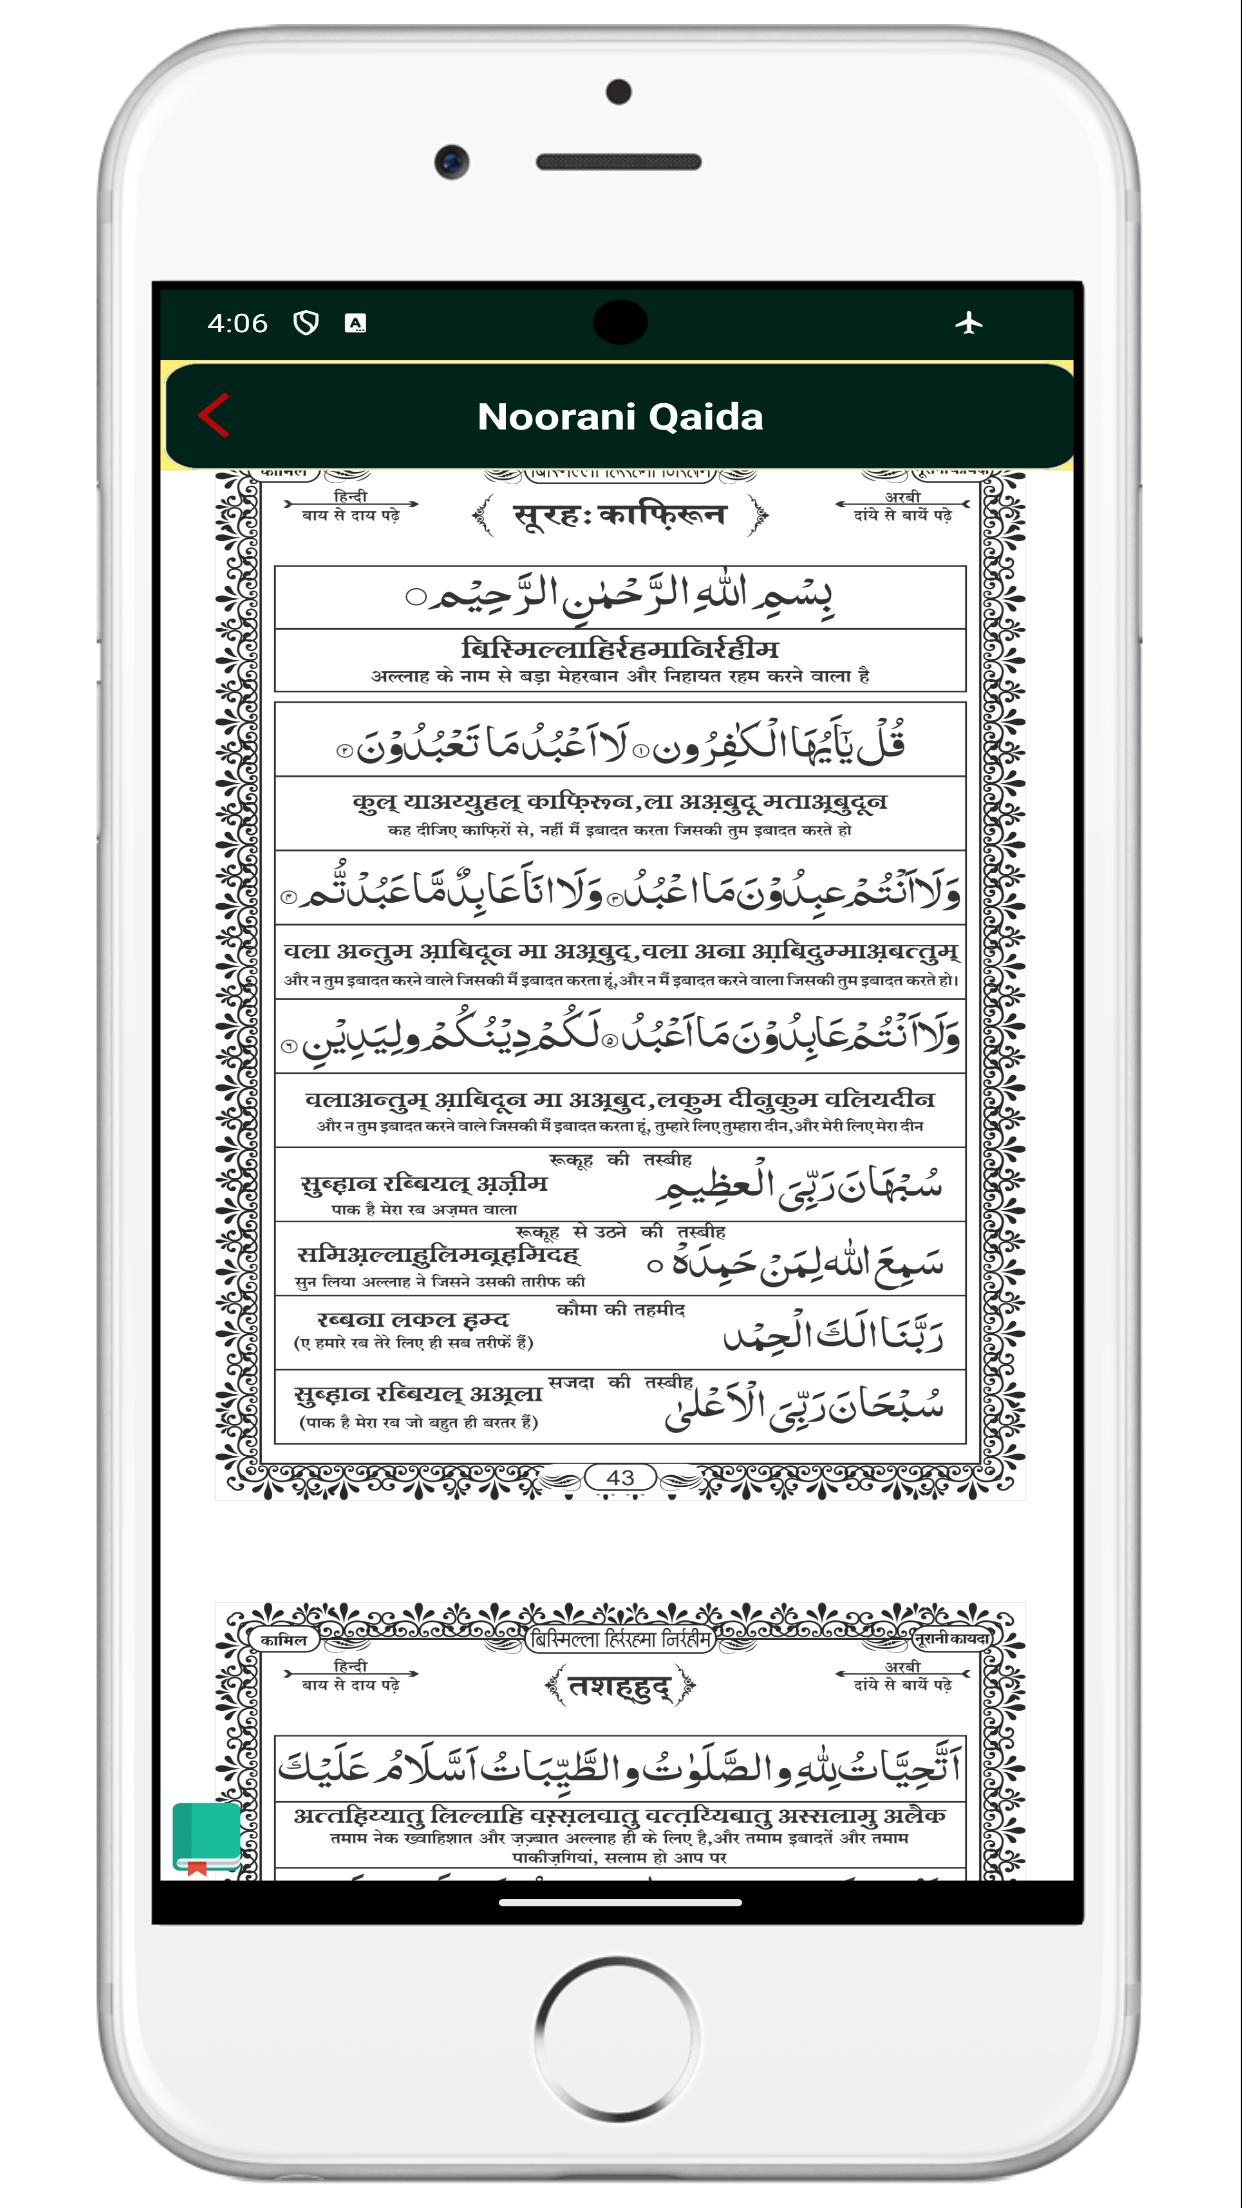 4:06
A
Noorani Qaida
कामिल
हिन्दी
बाय से दाय पढ़े
सूरहः काफ़िरून
अरबी
दांये से बायें पढ़े
بِسْمِ اللّٰهِ الرَّحْمٰنِ الرَّحِيْمِ
बिस्मिल्लाहिर्रहमानिर्रहीम
अल्लाह के नाम से बड़ा मेहरबान और निहायत रहम करने वाला है
قُلْ يٰٓاَيُّهَا الْكٰفِرُون ١ لَا اَعْبُدُ مَا تَعْبُدُوْنَ ٢
कुल् याअय्युहल् काफ़िरून,ला अअ़बुदू मताअ़बुदून
कह दीजिए काफिरों से, नहीं मैं इबादत करता जिसकी तुम इबादत करते हो
وَلَا اَنْتُمْ عٰبِدُوْنَ مَا اعْبُدُ ٣ وَلَا انَا عَابِدٌ مَّا عَبُدْتُّم ٤
वला अन्तुम आ़बिदून मा अअ़बुद्,वला अना आ़बिदुम्माअ़बत्तुम्
और न तुम इबादत करने वाले जिसकी मैं इबादत करता हूं,और न मैं इबादत करने वाला जिसकी तुम इबादत करते हो।
وَلَا اَنْتُمْ عَابِدُوْنَ مَا اَعْبُدُ ٥ لَكُمْ دِيْنُكُمْ ولِيَدِيْنِ ٦
वलाअन्तुम् आ़बिदून मा अअ़बुद,लकुम दीनुकुम वलियदीन
और न तुम इबादत करने वाले जिसकी मैं इबादत करता हूं, तुम्हारे लिए तुम्हारा दीन,और मेरी लिए मेरा दीन
रूकूह की तस्बीह
सुब्हान रब्बियल् अ़ज़ीम
سُبْهَانَ رَبِّىَ الْعظِيمِ
पाक है मेरा रब अज़मत वाला
रूकूह से उठने की तस्बीह
समिअ़ल्लाहुलिमनह़मिदह
سَمِعَ اللّٰه لِمَنْ حَمِدَهْ
सुन लिया अल्लाह ने जिसने उसकी तारीफ की
कौमा की तहमीद
रब्बना लकल ह़म्द
رَبَّنَا الَكَ الْحِمْد
(ए हमारे रब तेरे लिए ही सब तरीफें हैं)
सजदा की तस्बीह
सुब्हान रब्बियल् अअ़ला
سُبْحَانَ رَبِّىَ الْاَعْلىٰ
(पाक है मेरा रब जो बहुत ही बरतर हैं)
43
कामिल
बिस्मिल्ला हिर्ररहमा निर्रहीम
नूरानी कायदा
हिन्दी
बाय से दाय पढ़े
तशह्हुद्
अरबी
दांये से बायें पढ़े
اَتَّحِيَّاتُ لِلّٰهِ والصَّلَوٰتُ والطَّيِّبَاتُ اَسَّلَامُ عَلَيْكَ
अत्तहिय्यातु लिल्लाहि वस़्स़लवातु वत्त़य्यिबातु अस्सलामु अलैक
तमाम नेक ख्वाहिशात और ज़ज़्बात अल्लाह ही के लिए है,और तमाम इबादतें और तमाम
पाकीज़गियां, सलाम हो आप पर